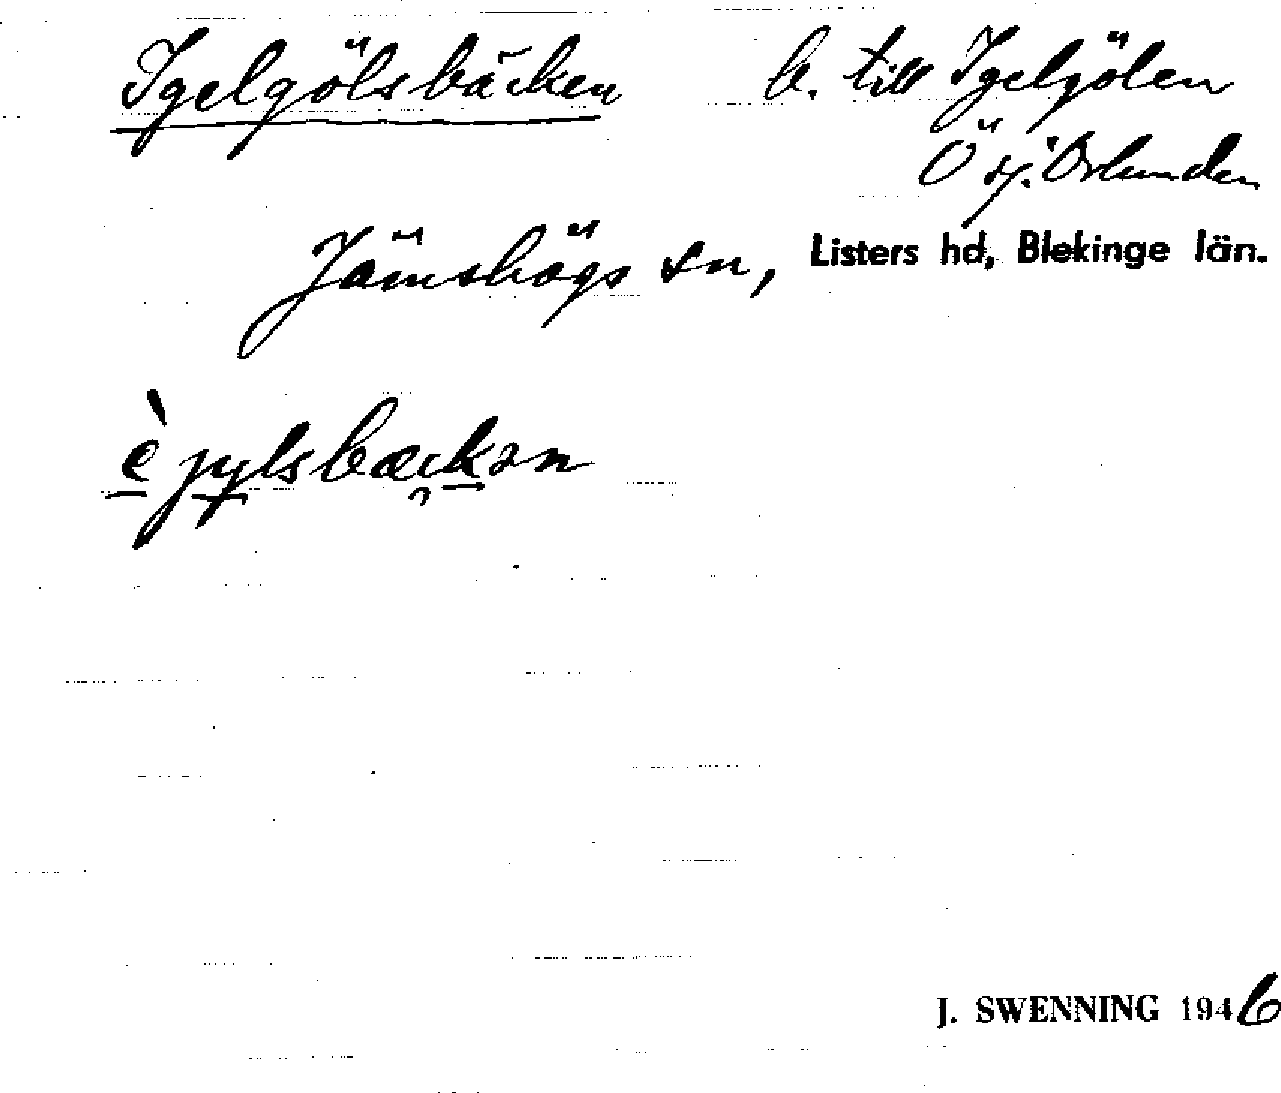 Igelgölsbäcken b. till Igelgölen
Ö sj. Orlunden
Jämshögs sn, Listers hd, Blekinge län.
J. SWENNING 1946